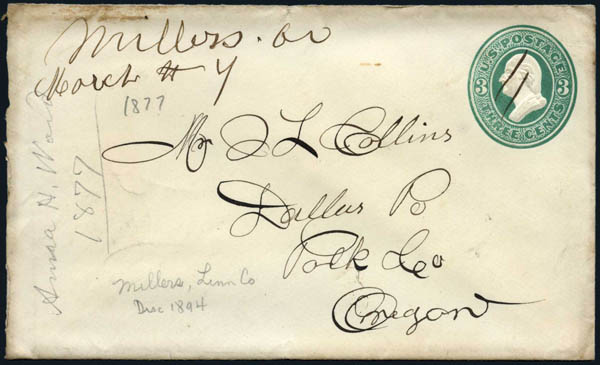 Millers. Or
March # 7
1877
U.S. POSTAGE
3 3
THREE CENTS
Mr J L Collins
Dallas Po
Polk Co
Oregon
Millers, Linn Co
Disc 1894
Anna H.
1877